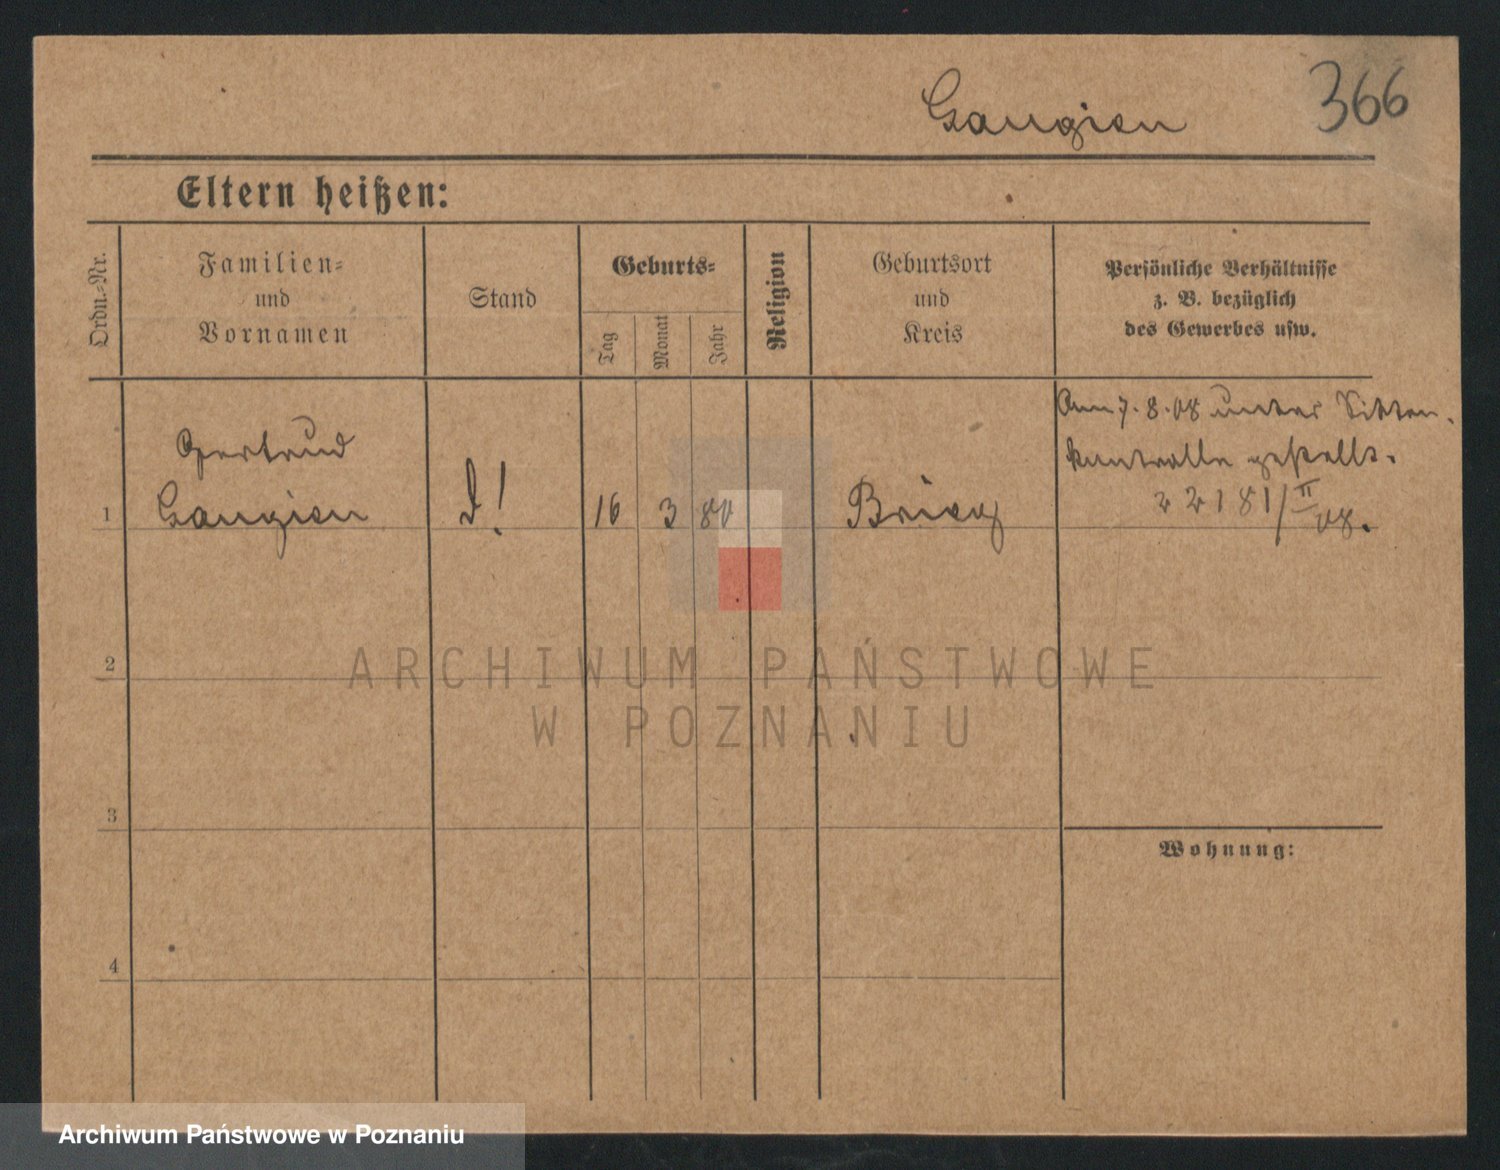 366
Eltern heißen:
Ordn.-Nr.
Familien-
und
Vornamen
Stand
Geburts-
Tag
Monat
Jahr
Religion
Geburtsort
und
Kreis
Persönliche Verhältnisse
z. B. bezüglich
des Gewerbes usw.
Am 7.8.08 unter Sitten-
kontrolle gestellt.
22181/II 08.
Gertrud
1
16
3
80
Brieg
2
ARCHIWUM PAŃSTWOWE
W POZNANIU
3
Wohnung:
4
Archiwum Państwowe w Poznaniu